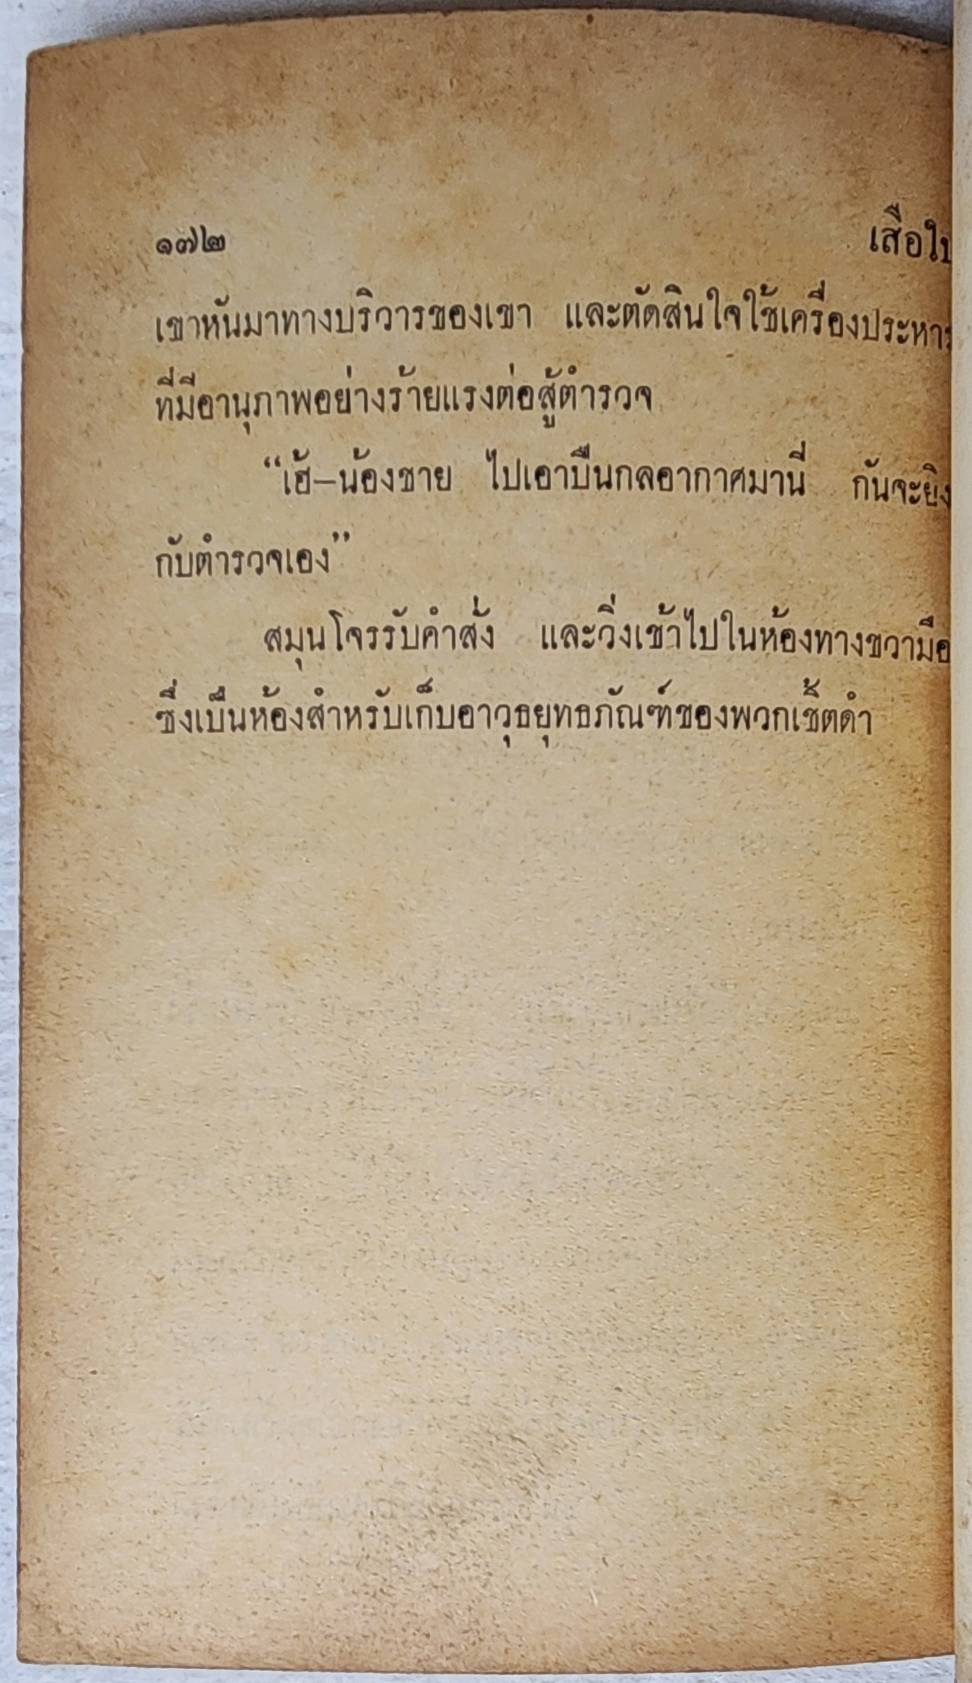 ๑๗๒ เสือใบ
เขาหันมาทางบริวารของเขา และตัดสินใจใช้เครื่องประหาร
ที่มีอานุภาพอย่างร้ายแรงต่อสู้ตำรวจ
“เฮ้—น้องชาย ไปเอาปืนกลอากาศมานี่ กันจะยิง
กับตำรวจเอง”
สมุนโจรรับคำสั่ง และวิ่งเข้าไปในห้องทางขวามือ
ซึ่งเป็นห้องสำหรับเก็บอาวุธยุทธภัณฑ์ของพวกเชิ้ตดำ